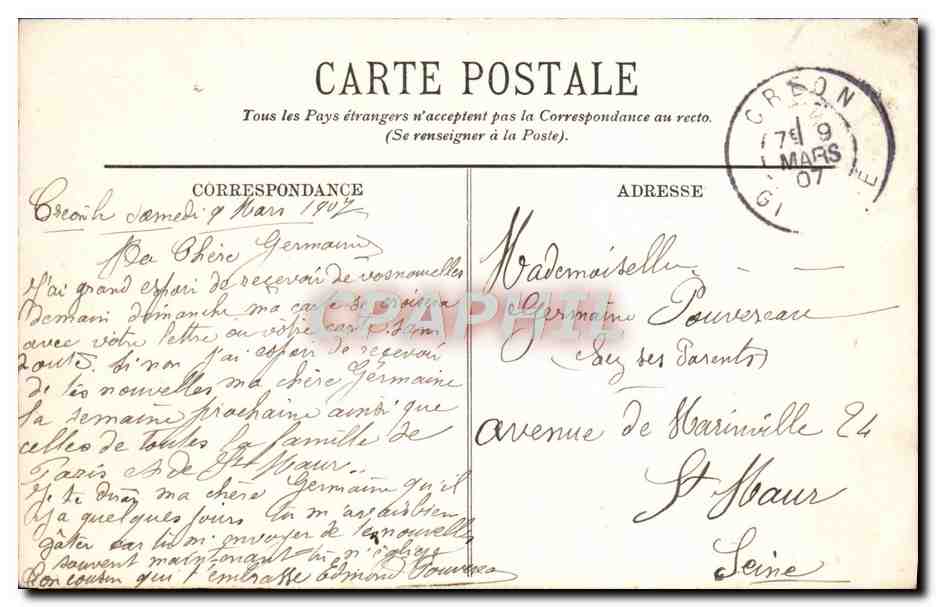 CARTE POSTALE
Tous les Pays étrangers n'acceptent pas la Correspondance au recto.
(Se renseigner à la Poste).
CREON
7E 9
MARS
07
GI E
CORRESPONDANCE
Samedi 9 Mars 1907
Ma Chère Germaine
J'ai grand espoir de recevoir de vos nouvelles
demain dimanche ma carte se croisera
avec votre lettre ou votre carte sans
doute. Si non j'ai espoir de recevoir
de tes nouvelles ma chère Germaine
la semaine prochaine ainsi que
celles de toutes la famille de
Paris et de St Maur.
Je te dirai ma chère Germaine qu'il
y a quelques jours tu m'avais bien
gâter car tu m'envoyer de tes nouvelles
souvent maintenant tu
ton cousin qui t'embrasse Edmond Pouvereau
ADRESSE
Mademoiselle
Germaine Pouvereau
Chez ses Parents
avenue de Marinville 24
St Maur
Seine
CPAPHIL